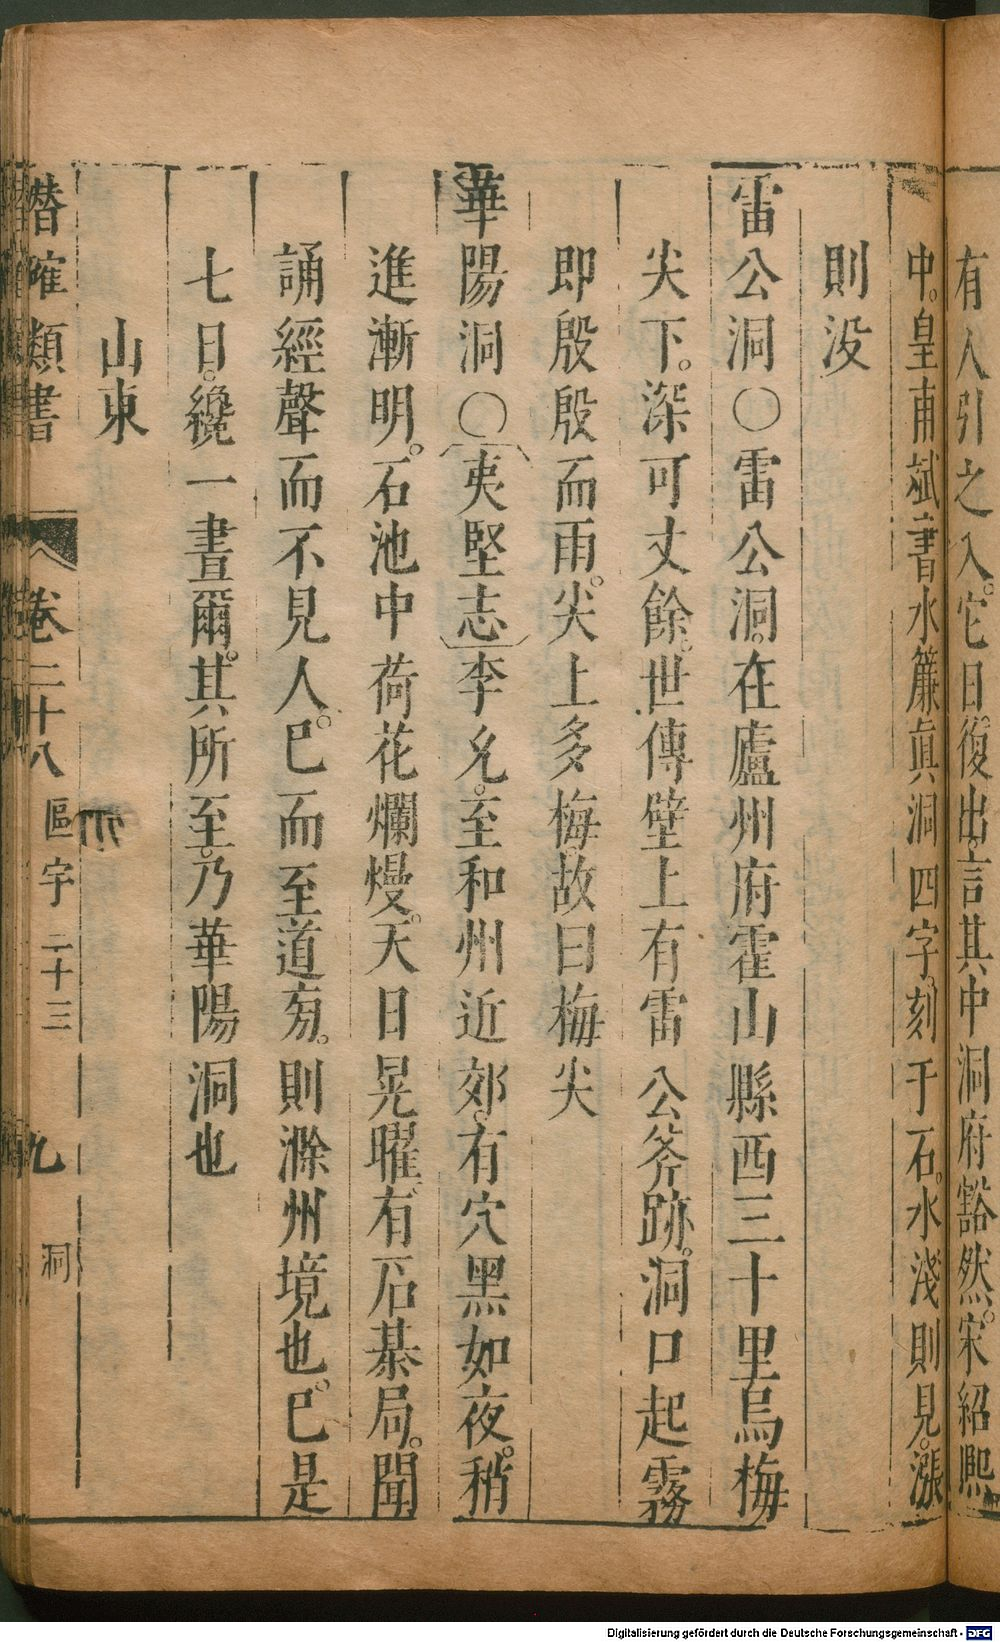 有人引之入。它日復出。言其中洞府豁然。宋紹熙
中。皇甫斌書水簾眞洞四字。刻于石。水淺則見。漲
則没
雷公洞〇雷公洞。在廬州府霍山縣西三十里烏梅
尖下。深可丈餘。世傳壁上有雷公斧跡。洞口起霧
即殷殷而雨。尖上多梅。故曰梅尖
華陽洞〇夷堅志李允。至和州近郊。有穴黑如夜。稍
進漸明。石池中荷花爛熳。天日晃曜。有石棊局。聞
誦經聲而不見人。巳而至道旁。則滁州境也。巳是
七日。纔一晝爾。其所至。乃華陽洞也
山東
潛確類書 卷二十八 區宇二十三 九 洞
Digitalisierung gefördert durch die Deutsche Forschungsgemeinschaft - DFG